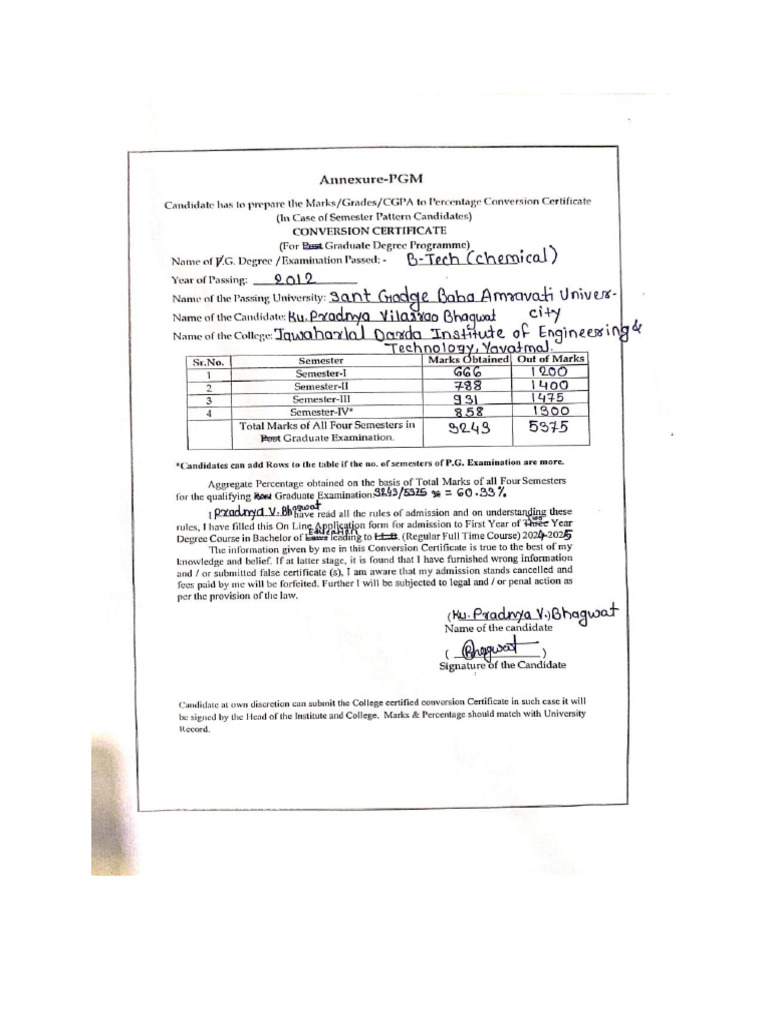 Annexure-PGM
Candidate has to prepare the Marks/Grades/CGPA to Percentage Conversion Certificate
(In Case of Semester Pattern Candidates)
CONVERSION CERTIFICATE
(For Post Graduate Degree Programme)
Name of P.G. Degree / Examination Passed: - B-Tech (chemical)
Year of Passing: 2012
Name of the Passing University: Sant Gadge Baba Amravati Univer-
Name of the Candidate: Ku. Pradnya Vilasrao Bhagwat city
Name of the College: Jawaharlal Darda Institute of Engineering &
Technology, Yavatmal.
Sr.No. Semester Marks Obtained Out of Marks
1 Semester-I 666 1200
2 Semester-II 788 1400
3 Semester-III 931 1475
4 Semester-IV* 858 1300
Total Marks of All Four Semesters in 3243 5375
Post Graduate Examination.
*Candidates can add Rows to the table if the no. of semesters of P.G. Examination are more.
Aggregate Percentage obtained on the basis of Total Marks of all Four Semesters
for the qualifying Post Graduate Examination 3243/5375 % = 60.33%
I Pradnya V. Bhagwat have read all the rules of admission and on understanding these
rules, I have filled this On Line Application form for admission to First Year of Three Two Year
Degree Course in Bachelor of Laws Education leading to LL.B. (Regular Full Time Course) 2024-2025
The information given by me in this Conversion Certificate is true to the best of my
knowledge and belief. If at latter stage, it is found that I have furnished wrong information
and / or submitted false certificate (s), I am aware that my admission stands cancelled and
fees paid by me will be forfeited. Further I will be subjected to legal and / or penal action as
per the provision of the law.
(Ku. Pradnya V.) Bhagwat
Name of the candidate
( Bhagwat )
Signature of the Candidate
Candidate at own discretion can submit the College certified conversion Certificate in such case it will
be signed by the Head of the Institute and College. Marks & Percentage should match with University
Record.